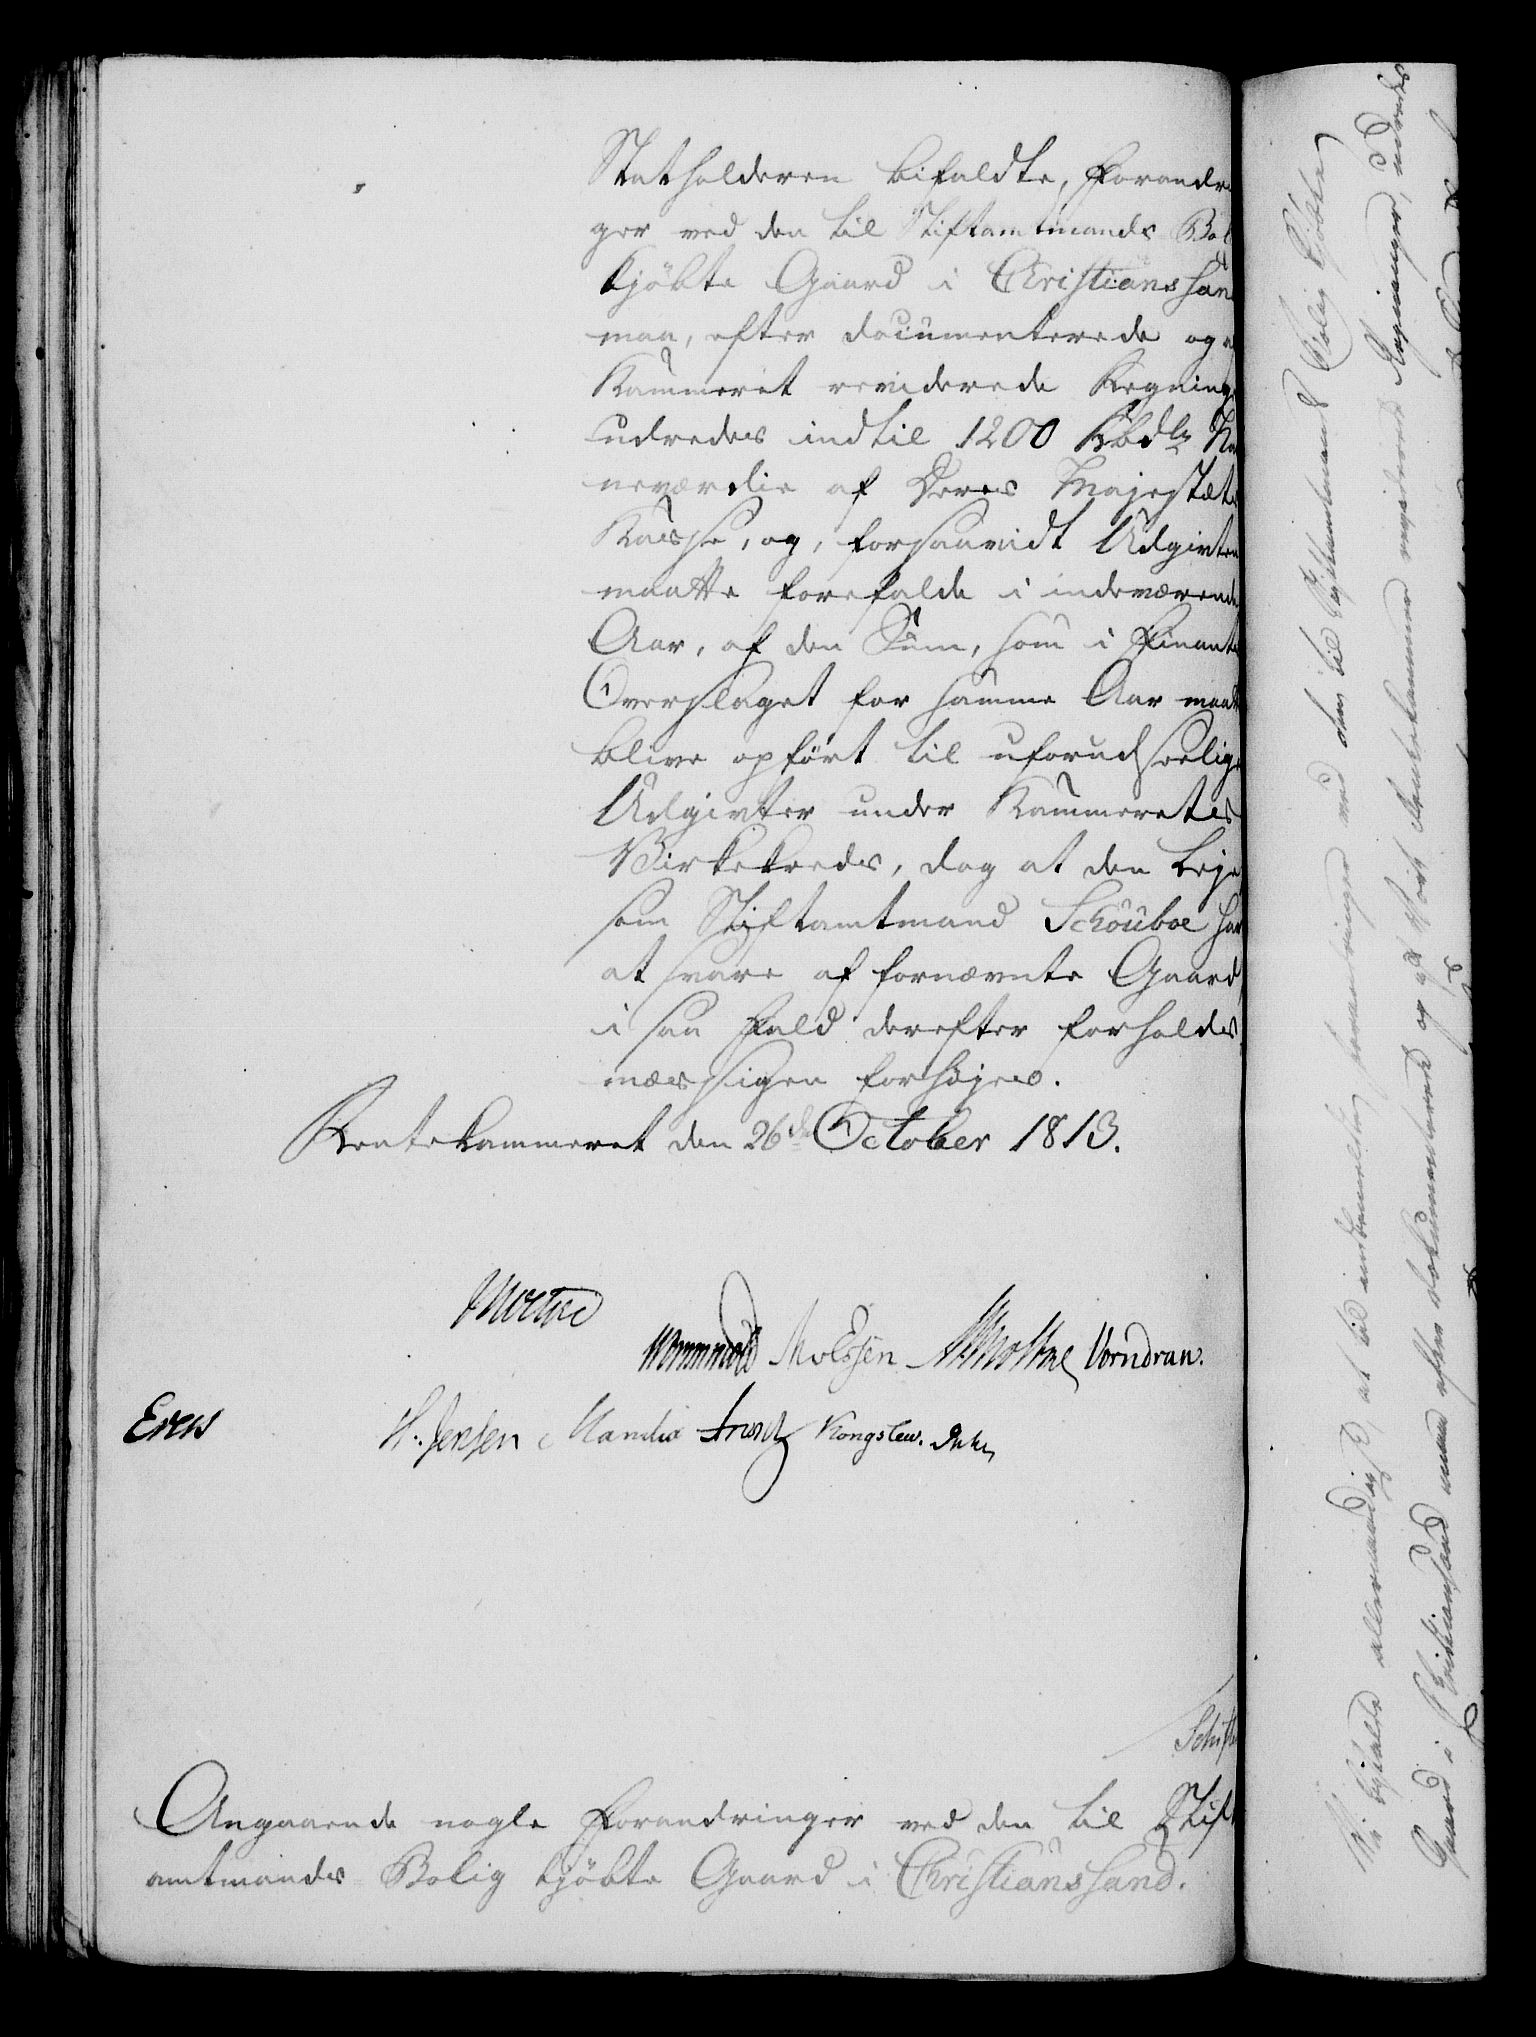 Statholderen bifaldte, Forandrin
ger ved den til Stiftamtmands Bol
kjöbte Gaard i Christianssan
maa, efter documenterede og a
Kammeret reviderede Regninge
udredes indtil 1200 Rbdlr Na
neværdie af Deres Majestæts
Kasse, og, forsaavidt Udgivten
maatte forefalde i indeværende
Aar, af den Sum, som i Finants
Overslaget for samme Aar maat
blive opfört til uforudseelige
Udgivter under Kammerets
Virkekreds, dog at den Leje
som Stiftamtmand Schouboe har
at svare af fornævnte Gaard
i saa Fald derefter forholds
mæssigen forhöjes.
Rentekammeret den 26de October 1813.
Wormskiold Mvessen Vorndran.
Evers H. Jensen Kongslew.
Angaaende nogle Forandringer ved den til Stift
amtmands Bolig kjöbte Gaard i Christianssand.
Vi bifalde allernaadigst, at de forandringer ved den til Stiftamtmands Bolig kjöbte
Gaard i Christiansand maae efter dokumenterede og af Vort Rentekammer reviderede Regninger, udredes